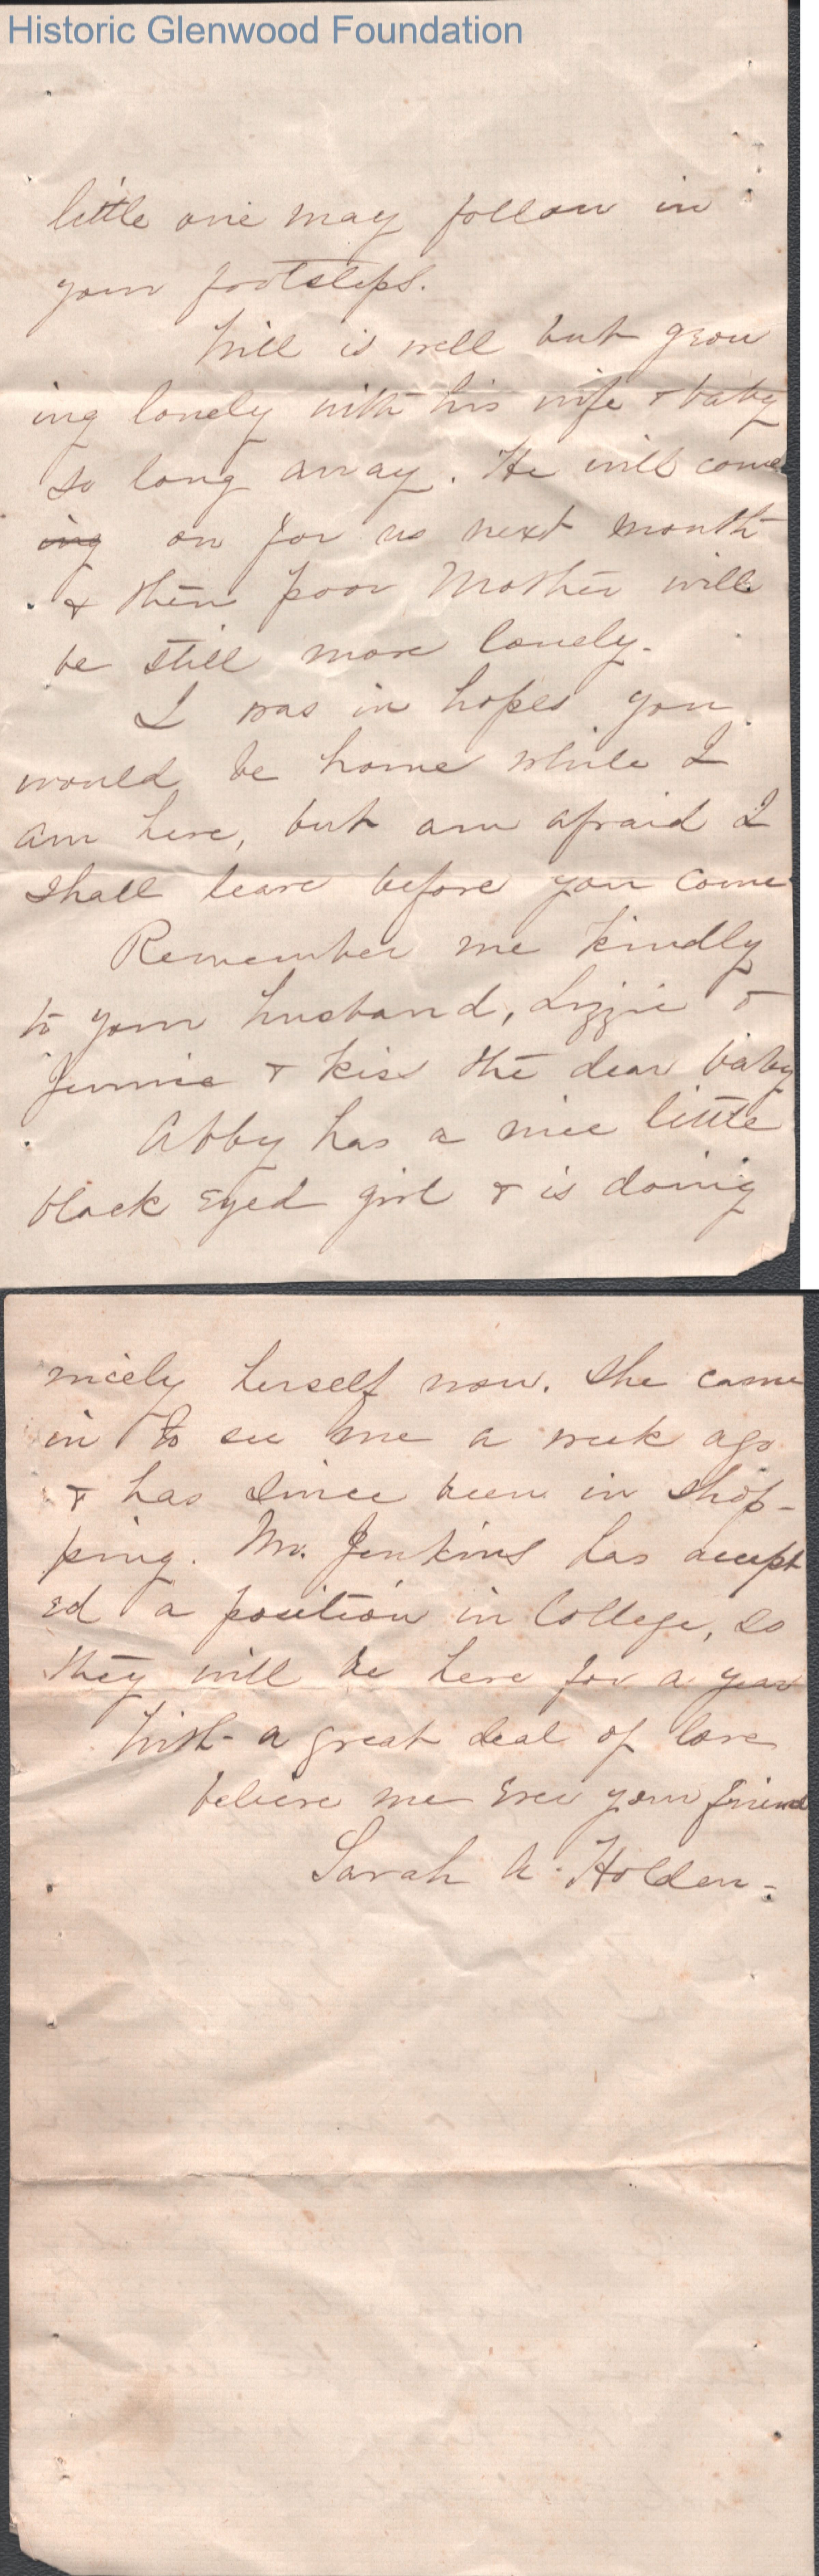 Historic Glenwood Foundation
little one may follow in
your footsteps.
Will is well but grow
ing lonely with his wife & baby
so long away. He will come
ing on for us next month
& then poor Mother will
be still more lonely.
I was in hopes you
would be home while I
am here, but am afraid I
shall leave before you come
Remember me kindly
to your husband, Lizzie &
Jennie & kiss the dear baby
Abby has a nice little
black eyed girl & is doing
nicely herself now. She came
in to see me a week ago
& has since been in shop-
ping. Mr. Jenkins has accept
ed a position in College, so
they will be here for a year
With a great deal of love
believe me ever your friend
Sarah A. Holden.